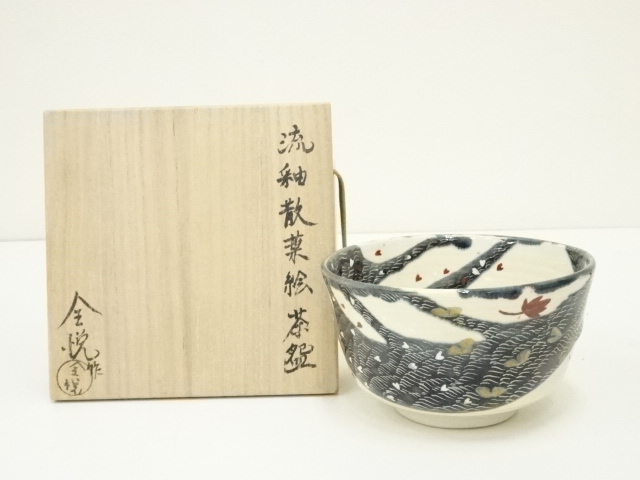 流釉散葉絵茶盌
全悦作
全悦